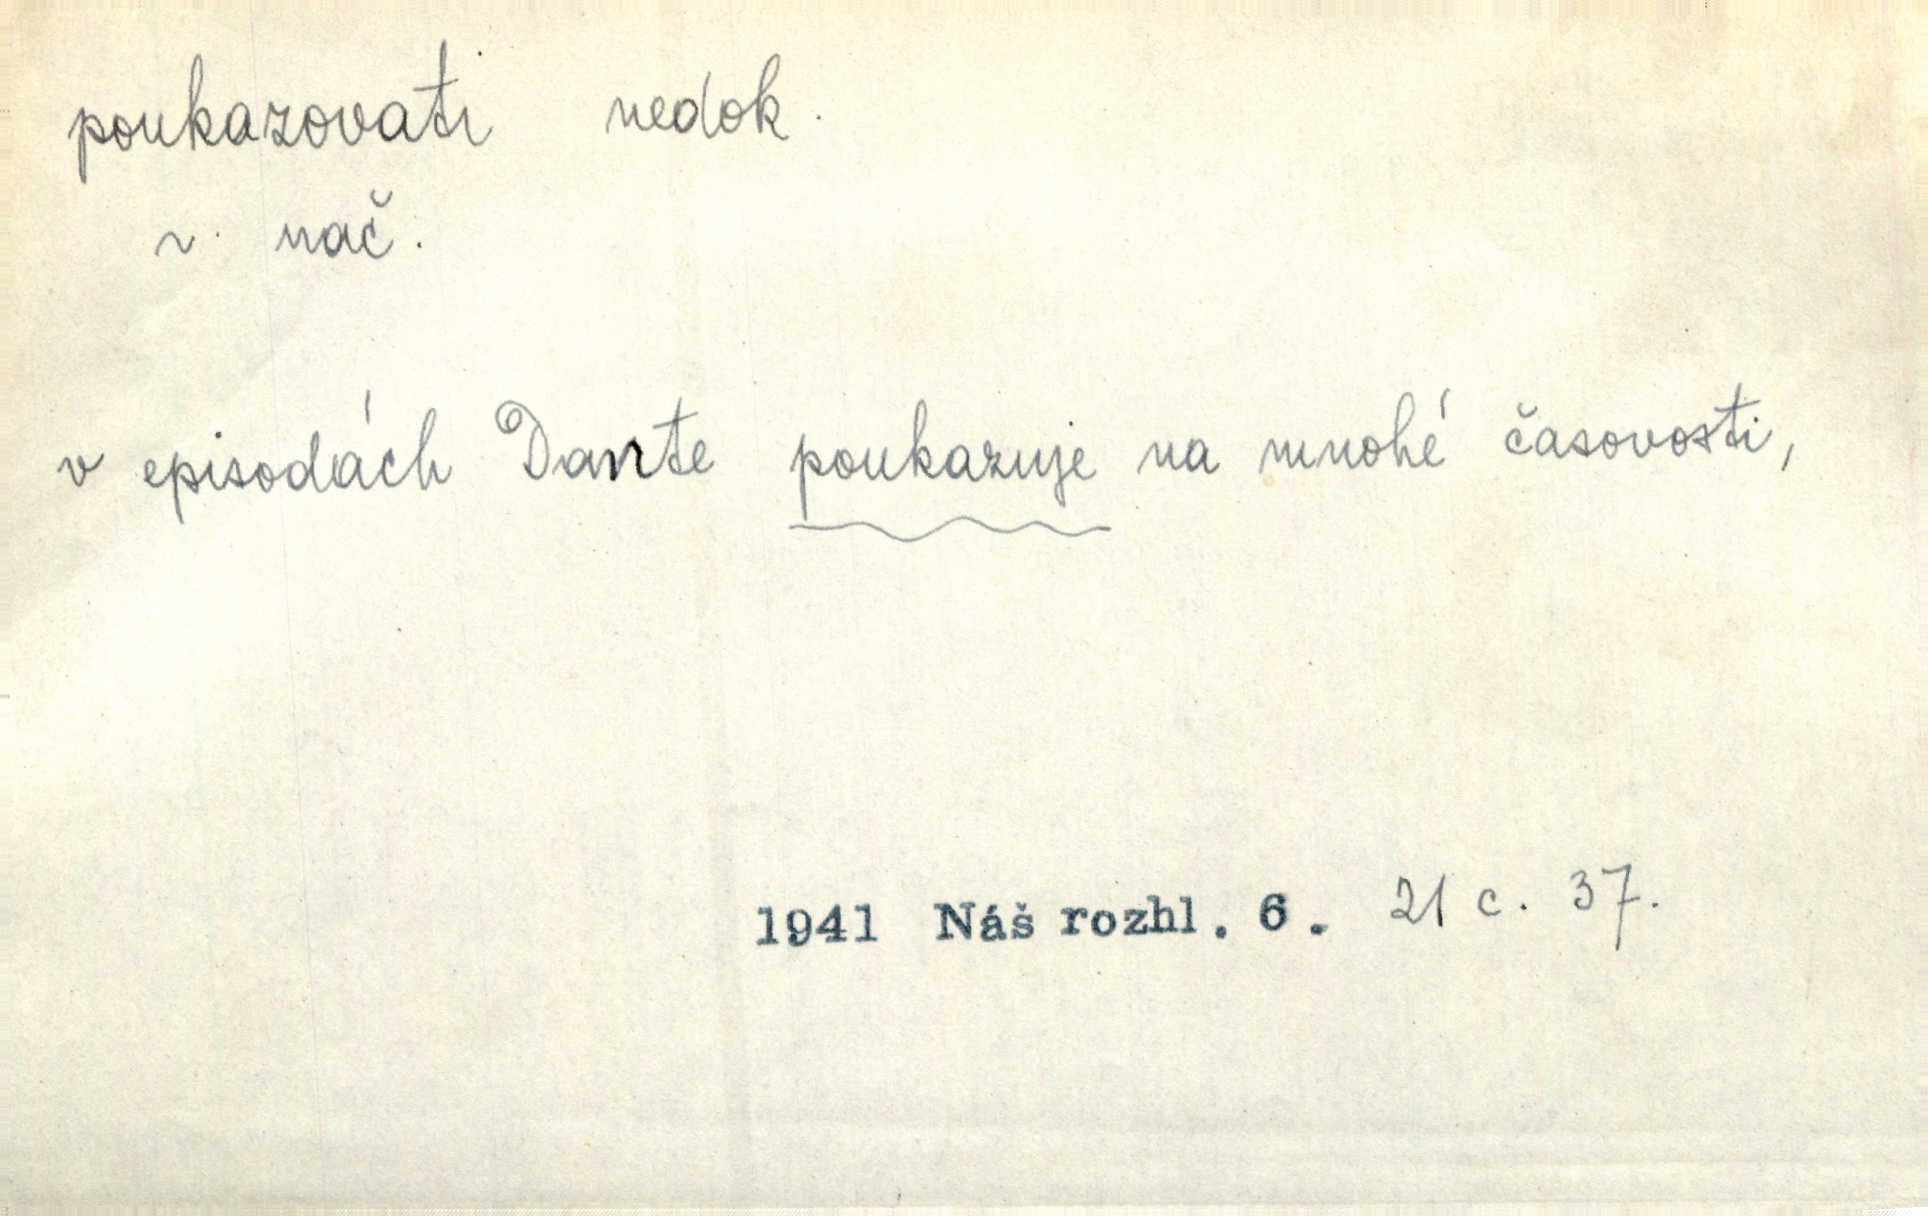 poukazovati nedok.
~. nač.
v episodách Dante poukazuje na mnohé časovosti,
1941 Náš rozhl. 6. 21 c. 37.